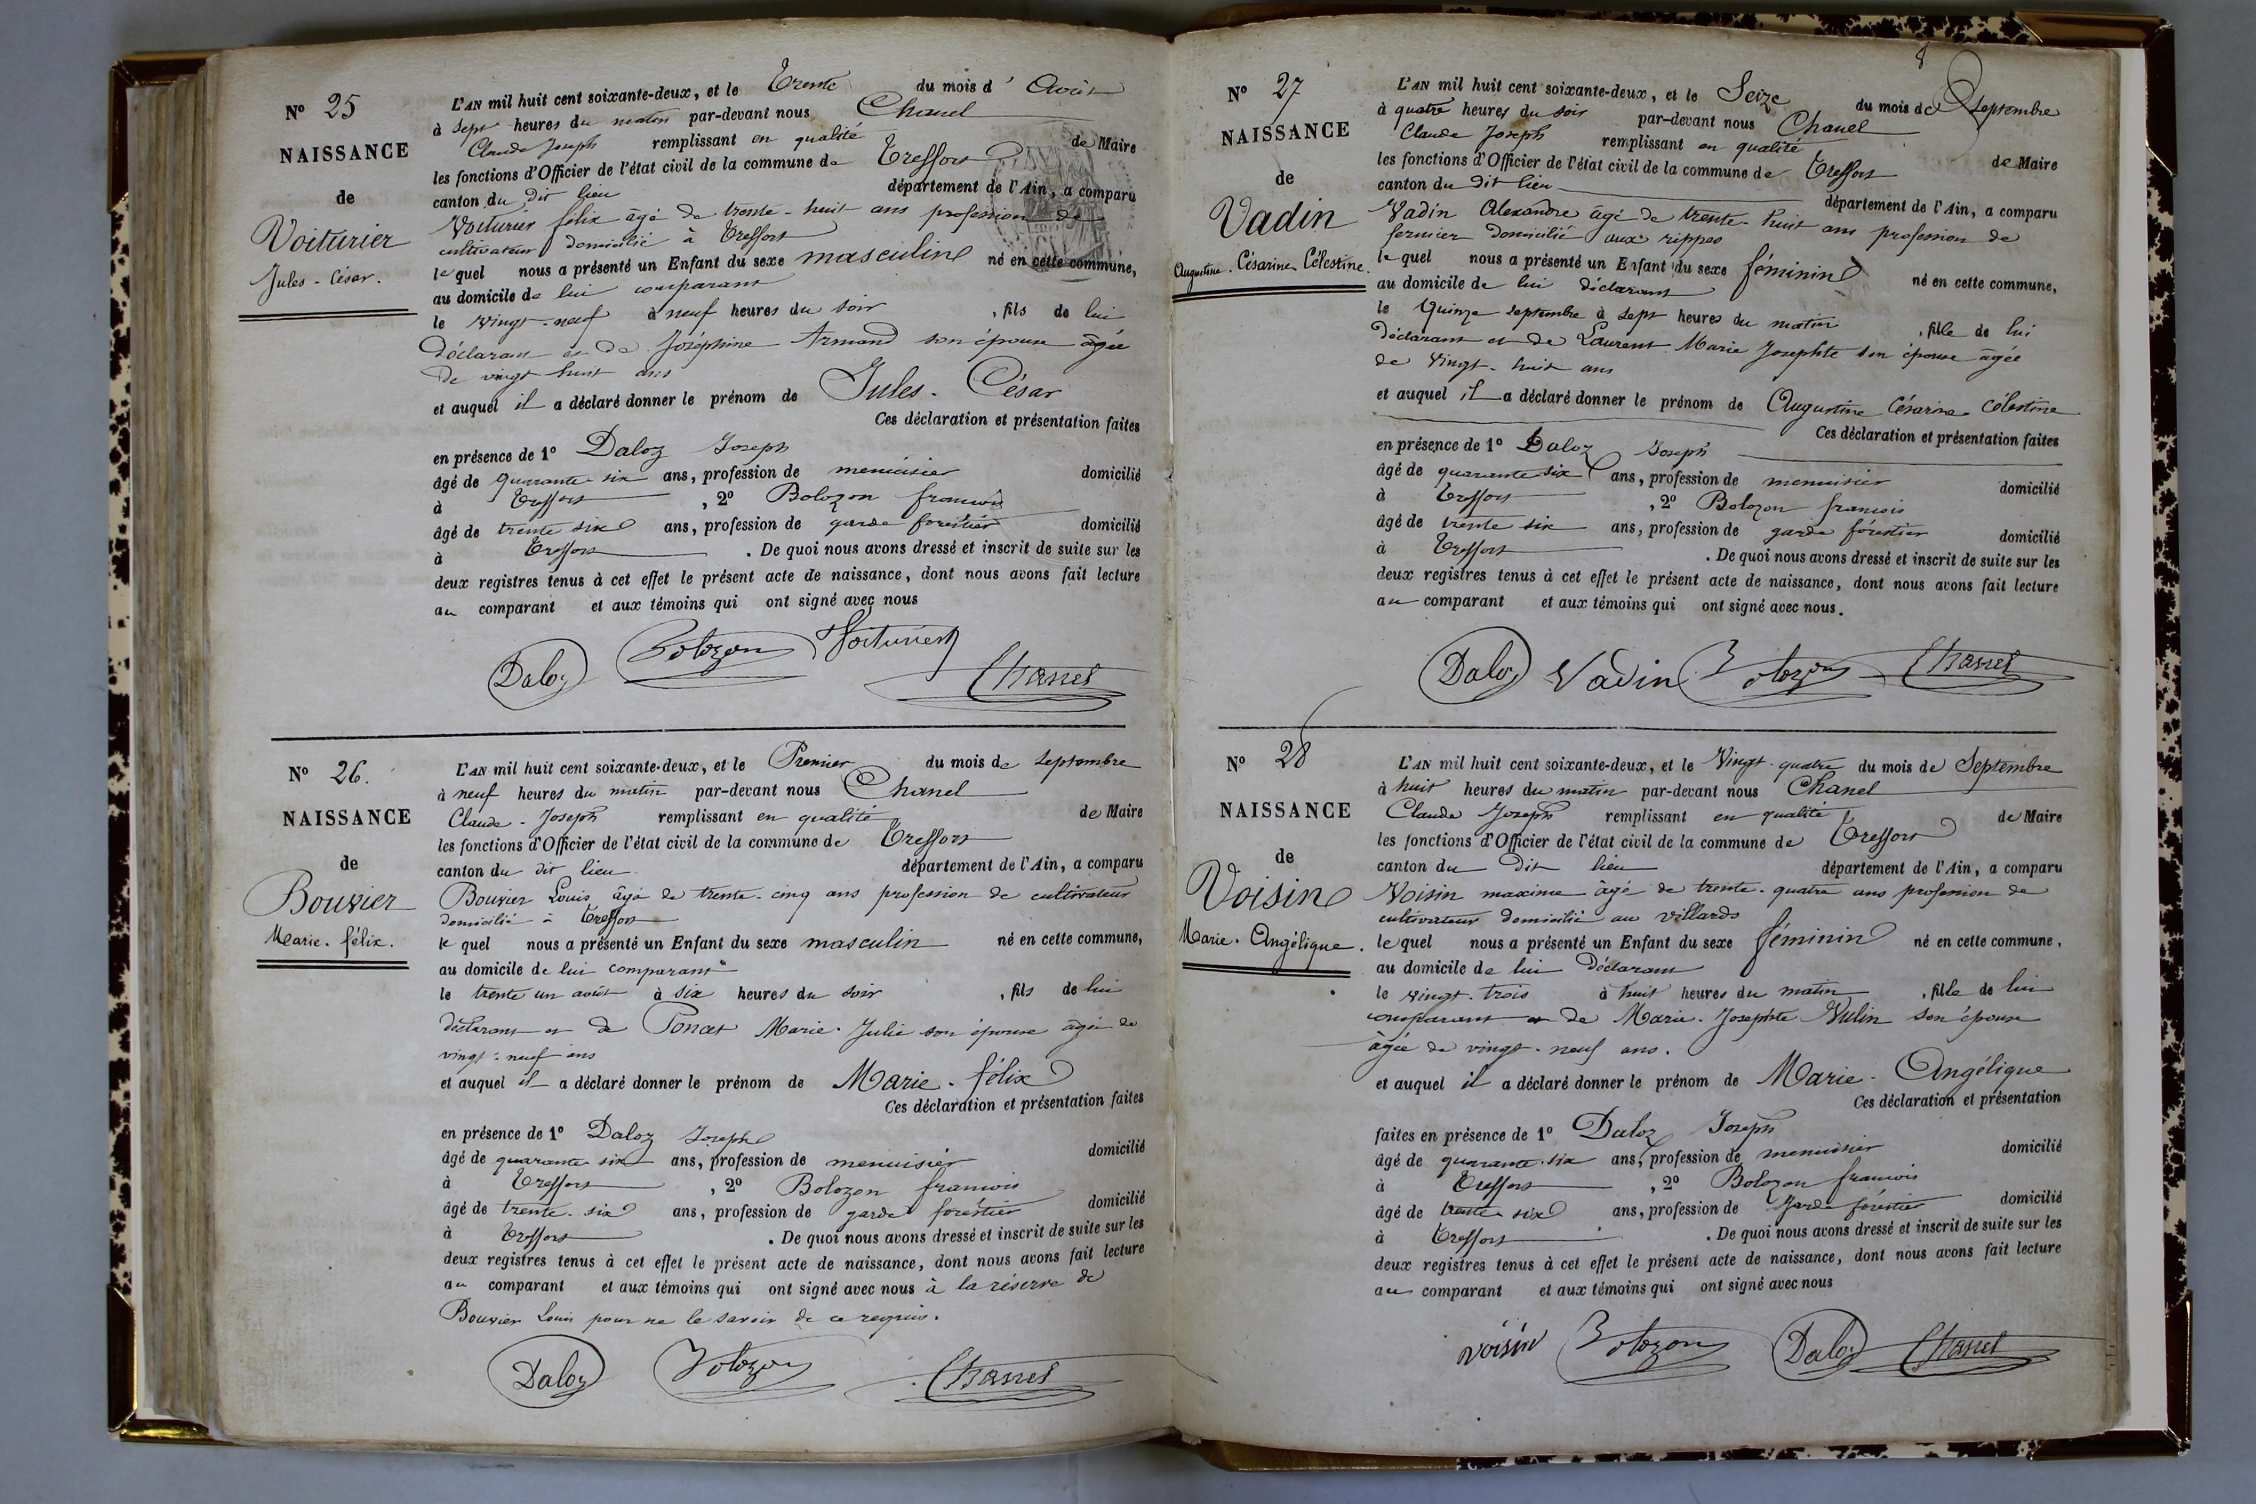 N° 25
NAISSANCE
de
Voiturier
Jules - César.
L'AN mil huit cent soixante-deux, et le Trente du mois d' Août
à sept heures du matin par-devant nous Chanel
Claude Joseph remplissant en qualité de Maire
les fonctions d'Officier de l'état civil de la commune de Treffort
canton du dit lieu département de l'Ain, a comparu
Voiturier félix âgé de trente - huit ans profession de
cultivateur domicilié à Treffort
lequel nous a présenté un Enfant du sexe masculin né en cette commune,
au domicile de lui comparant
le vingt - neuf à neuf heures du soir , fils de lui
déclarant et de Joséphine Armand son épouse âgée
de vingt huit ans
et auquel il a déclaré donner le prénom de Jules - César
Ces déclaration et présentation faites
en présence de 1° Daloz Joseph
âgé de quarante six ans, profession de menuisier domicilié
à Treffort , 2° Bolozon francois
âgé de trente six ans, profession de garde forestier domicilié
à Treffort . De quoi nous avons dressé et inscrit de suite sur les
deux registres tenus à cet effet le présent acte de naissance, dont nous avons fait lecture
au comparant et aux témoins qui ont signé avec nous
Daloz Bolozon Voiturier Chanel
N° 26.
NAISSANCE
de
Bouvier
Marie. félix.
L'AN mil huit cent soixante-deux, et le Premier du mois de Septembre
à neuf heures du matin par-devant nous Chanel
Claude - Joseph remplissant en qualité de Maire
les fonctions d'Officier de l'état civil de la commune de Treffort
canton du dit lieu département de l'Ain, a comparu
Bouvier Louis âgé de trente - cinq ans profession de cultivateur
domicilié à Treffort
lequel nous a présenté un Enfant du sexe masculin né en cette commune,
au domicile de lui comparant
le trente un août à six heures du soir , fils de lui
déclarant et de Poncet Marie - Julie son épouse âgée de
vingt - neuf ans
et auquel il a déclaré donner le prénom de Marie - félix
Ces déclaration et présentation faites
en présence de 1° Daloz Joseph
âgé de quarante six ans, profession de menuisier domicilié
à Treffort , 2° Bolozon francois
âgé de trente - six ans, profession de garde forestier domicilié
à Treffort . De quoi nous avons dressé et inscrit de suite sur les
deux registres tenus à cet effet le présent acte de naissance, dont nous avons fait lecture
au comparant et aux témoins qui ont signé avec nous à la réserve de
Bouvier Louis pour ne le savoir de ce requis.
Daloz Bolozon Chanel
8
N° 27
NAISSANCE
de
Vadin
Augustine. Césarine Célestine.
L'AN mil huit cent soixante-deux, et le Seize du mois de Septembre
à quatre heures du soir par-devant nous Chanel
Claude Joseph remplissant en qualité de Maire
les fonctions d'Officier de l'état civil de la commune de Treffort
canton du dit lieu département de l'Ain, a comparu
Vadin Alexandre âgé de trente - huit ans profession de
fermier domicilié aux rippes
lequel nous a présenté un Enfant du sexe féminin né en cette commune,
au domicile de lui déclarant
le Quinze septembre à sept heures du matin , fille de lui
déclarant et de Laurent Marie Josephte son épouse âgée
de vingt - huit ans
et auquel il a déclaré donner le prénom de Augustine Césarine Célestine
Ces déclaration et présentation faites
en présence de 1° Daloz Joseph
âgé de quarante six ans, profession de menuisier domicilié
à Treffort , 2° Bolozon francois
âgé de trente six ans, profession de garde forestier domicilié
à Treffort . De quoi nous avons dressé et inscrit de suite sur les
deux registres tenus à cet effet le présent acte de naissance, dont nous avons fait lecture
au comparant et aux témoins qui ont signé avec nous.
Daloz Vadin Bolozon Chanel
N° 28
NAISSANCE
de
Voisin
Marie. Angélique.
L'AN mil huit cent soixante-deux, et le Vingt - quatre du mois de Septembre
à huit heures du matin par-devant nous Chanel
Claude Joseph remplissant en qualité de Maire
les fonctions d'Officier de l'état civil de la commune de Treffort
canton du dit lieu département de l'Ain, a comparu
Voisin maxime âgé de trente - quatre ans profession de
cultivateur domicilié au villards
lequel nous a présenté un Enfant du sexe féminin né en cette commune,
au domicile de lui déclarant
le vingt - trois à huit heures du matin , fille de lui
comparant et de Marie - Josephte Vulin son épouse
âgée de vingt - neuf ans.
et auquel il a déclaré donner le prénom de Marie - Angélique
Ces déclaration et présentation
faites en présence de 1° Daloz Joseph
âgé de quarante - six ans, profession de menuisier domicilié
à Treffort , 2° Bolozon francois
âgé de trente six ans, profession de garde forestier domicilié
à Treffort . De quoi nous avons dressé et inscrit de suite sur les
deux registres tenus à cet effet le présent acte de naissance, dont nous avons fait lecture
au comparant et aux témoins qui ont signé avec nous
voisin Bolozon Daloz Chanel